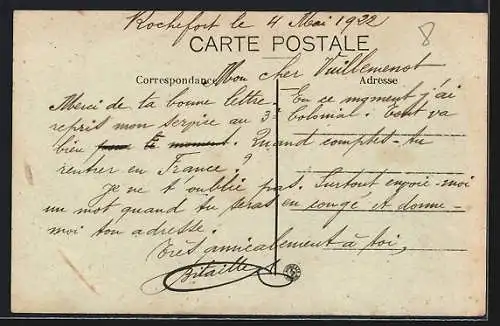 Rochefort le 4 Mai 1922
8
CARTE POSTALE
Correspondance
Adresse
Mon cher Vuillemenot
Merci de ta bonne lettre. En ce moment j'ai
repris mon service au 3e Colonial. Tout va
bien pour le moment. Quand comptes-tu
rentrer en France ?
Je ne t'oublie pas. Surtout envoie-moi
un mot quand tu seras en congé et donne-
moi ton adresse.
Très amicalement à toi,
Bitaille